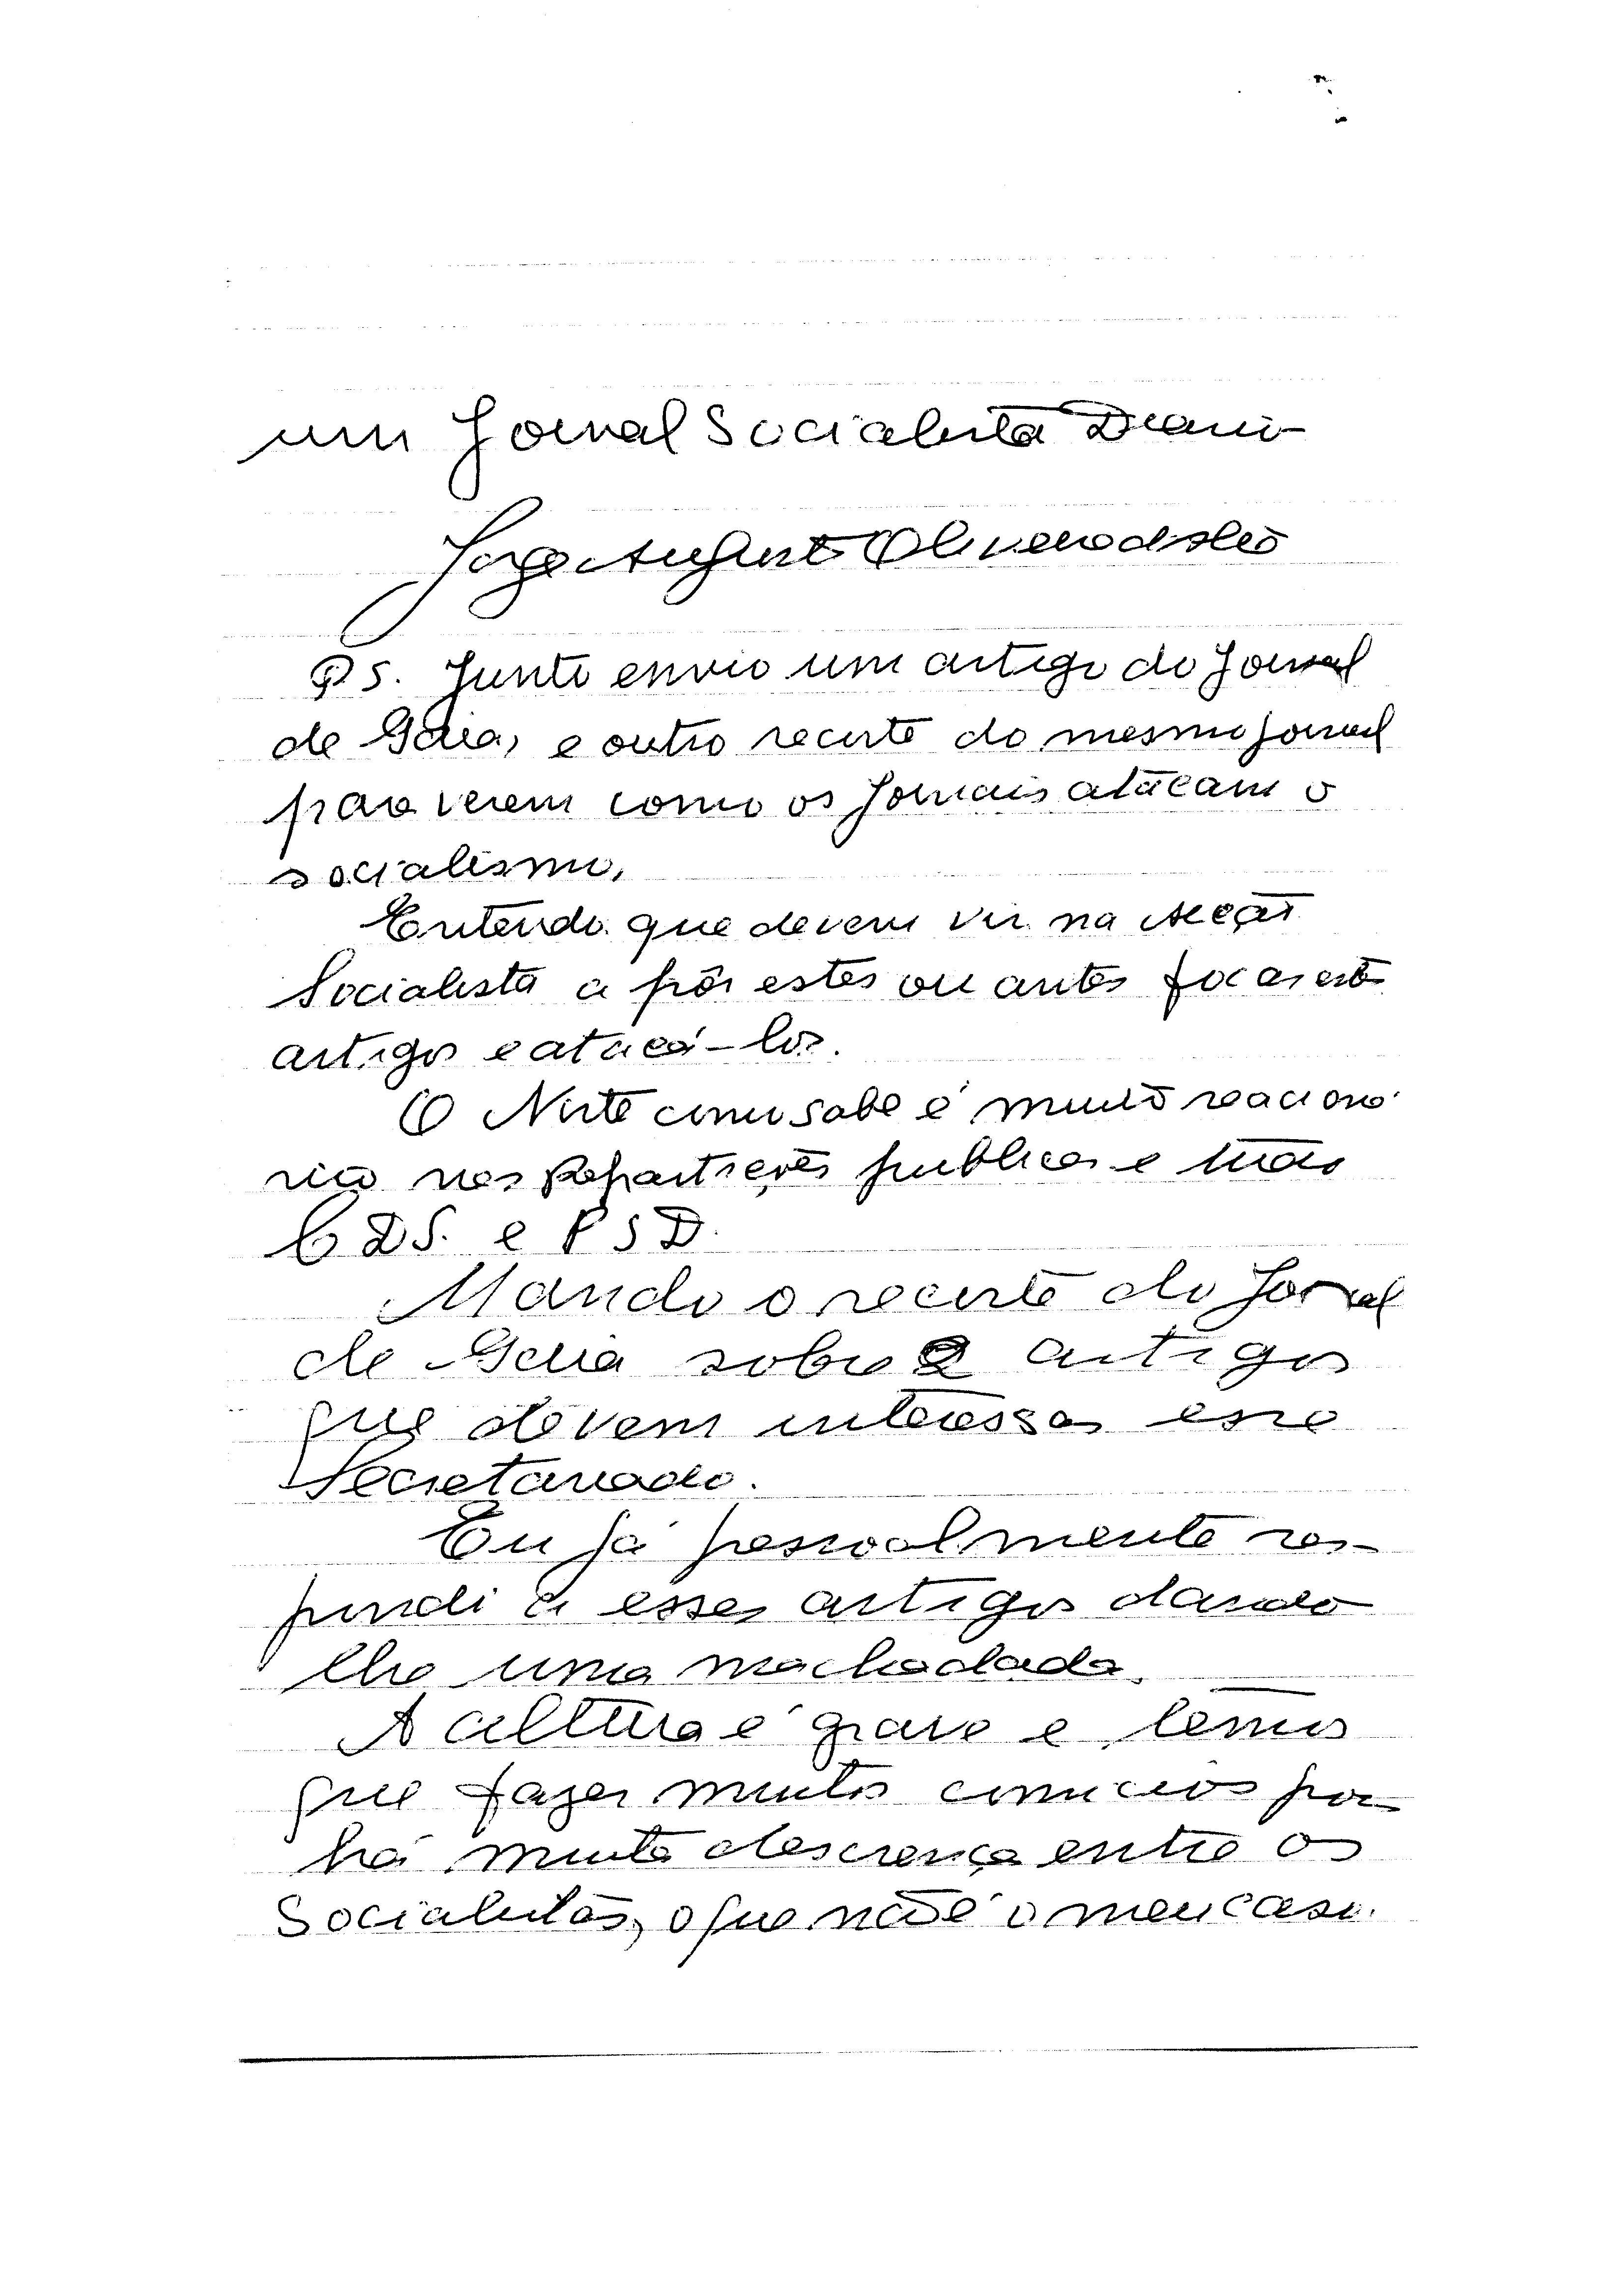 um Jornal Socialista Diario
Jorge Augusto Oliveira
PS. Junto envio um artigo do Jornal
de Gaia, e outro recorte do mesmo jornal
para verem como os Jornais atacam o
socialismo,
Entendo que devem vir na Acção
Socialista a pôr estes ou antes focar estes
artigos e atacá-los.
O Norte como sabe é muito reacioná
rio nas Repartições publicas e tudo
CDS. e PSD.
Mando o recorte do Jornal
de Gaia sobre 2 artigos
que devem interessar esse
Secretariado.
Eu já pessoalmente res-
pondi a esses artigos dando
lhe uma machadada.
A altura é grave e temos
que fazer muitos comicios por
há muita descrença entre os
Socialistas, o que não é o meu caso.